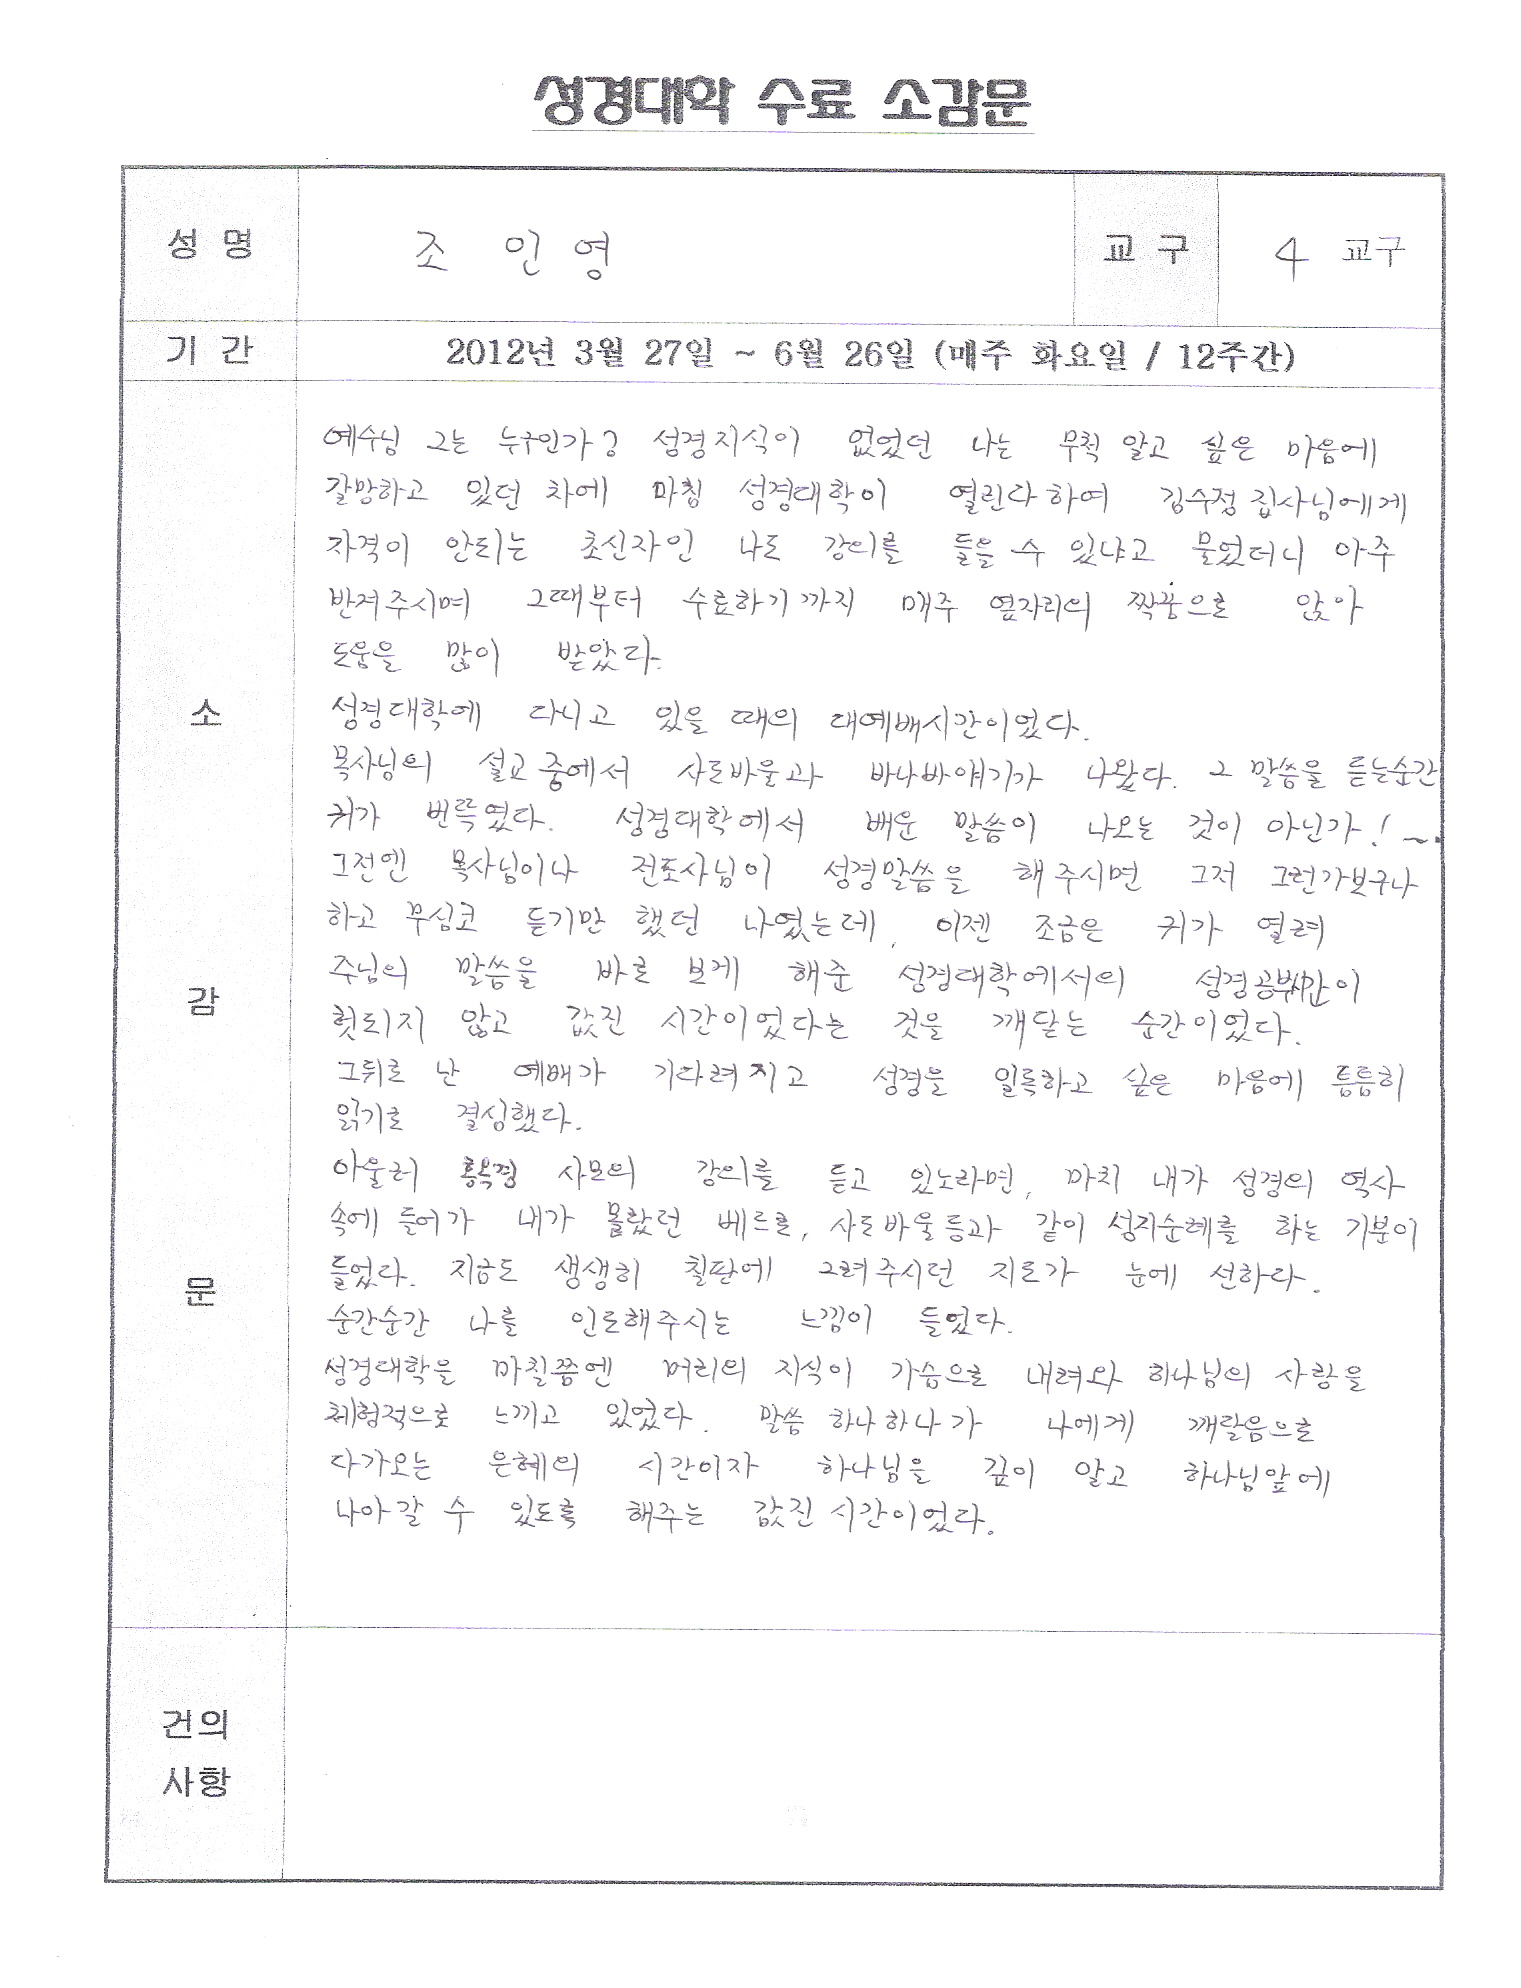 성경대학 수료 소감문
성 명 조 인 영 교 구 4 교구
기 간 2012년 3월 27일 ~ 6월 26일 (매주 화요일 / 12주간)
소
감
문
예수님 그는 누구인가? 성경지식이 없었던 나는 무척 알고 싶은 마음에
갈망하고 있던 차에 마침 성경대학이 열린다하여 김수정집사님에게
자격이 안되는 초신자인 나도 강의를 들을 수 있냐고 물었더니 아주
반겨주시며 그때부터 수료하기까지 매주 옆자리의 짝꿍으로 앉아
도움을 많이 받았다.
성경대학에 다니고 있을 때의 대예배시간이었다.
목사님의 설교중에서 사도바울과 바나바얘기가 나왔다. 그 말씀을 듣는순간
귀가 번뜩였다. 성경대학에서 배운 말씀이 나오는 것이 아닌가! ~.
그전엔 목사님이나 전도사님이 성경말씀을 해주시면 그저 그런가보구나
하고 무심코 듣기만 했던 나였는데, 이젠 조금은 귀가 열려
주님의 말씀을 바로 보게 해준 성경대학에서의 성경공부시간이
헛되지 않고 값진 시간이었다는 것을 깨닫는 순간이었다.
그뒤로 난 예배가 기다려지고 성경을 일독하고 싶은 마음에 틈틈히
읽기로 결심했다.
아울러 홍옥경 사모의 강의를 듣고 있노라면, 마치 내가 성경의 역사
속에 들어가 내가 몰랐던 베드로, 사도바울등과 같이 성지순례를 하는 기분이
들었다. 지금도 생생히 칠판에 그려주시던 지도가 눈에 선하다.
순간순간 나를 인도해주시는 느낌이 들었다.
성경대학을 마칠쯤엔 머리의 지식이 가슴으로 내려와 하나님의 사랑을
체험적으로 느끼고 있었다. 말씀 하나하나가 나에게 깨달음으로
다가오는 은혜의 시간이자 하나님을 깊이 알고 하나님앞에
나아갈 수 있도록 해주는 값진 시간이었다.
건의
사항